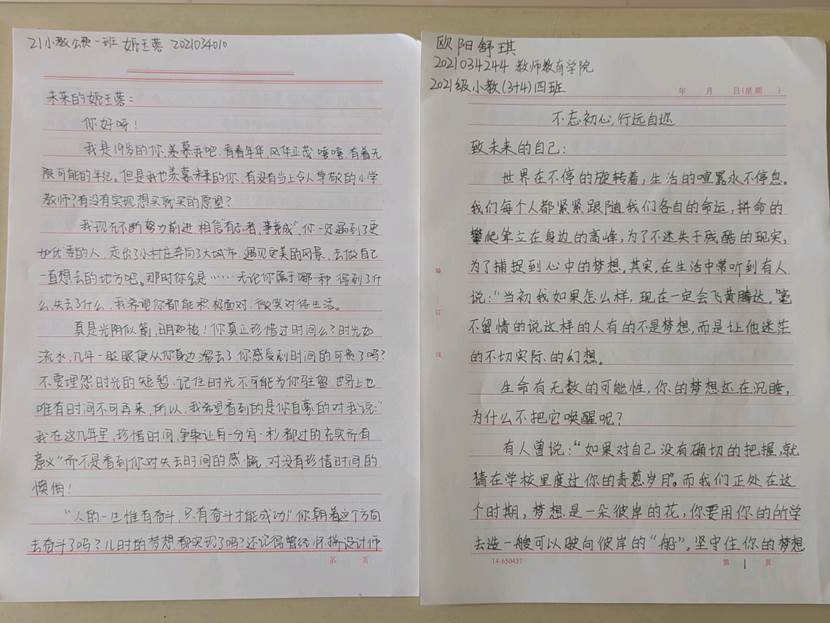 21小教公费一班 姬玉蓉 2021034010
未来的姬玉蓉：
你好呀！
我是19岁的你，羡慕我吧，青春年华，风华正茂，嘻嘻，有着无
限可能的年纪。但是我也羡慕未来的你，有没有当上令人尊敬的小学
教师？有没有实现想买就买的愿望？
我现在不断努力前进，相信“有志者，事竟成”，你一定遇到了更
加优秀的人，走出了小村庄奔向了大城市，遇见更美的风景，去做自己
一直想去的地方吧。那时你会是……无论你属于哪一种，得到了什
么，失去了什么，我希望你都能积极面对，微笑对待生活。
真是光阴似箭，日月如梭！你真正珍惜过时间么？时光如
流水，几年一眨眼便从你身边溜去了，你感受到时间的可贵了吗？
不要埋怨时光的短暂，记住时光不可能为你驻留，世界上也
唯有时间不可再来，所以，我希望看到的是你自豪的对我说：“
我在这几年里，珍惜时间，争取让每一分每一秒都过的充实而有
意义”而不是看到你对失去时间的感慨，对没有珍惜时间的
懊悔！
“人的一生惟有奋斗，只有奋斗才能成功”你朝着这个方向
去奋斗了吗？儿时的梦想都实现了吗？还记得曾经
设计师
第 页
欧阳舒琪
2021034244 教师教育学院
2021级小教(3+4)四班
年 月 日(星期 )
不忘初心，行远自迩
致未来的自己：
世界在不停的旋转着，生活的喧嚣永不停息。
我们每个人都紧紧跟随我们各自的命运，拼命的
攀爬耸立在身边的高峰，为了不迷失于残酷的现实，
为了捕捉到心中的梦想。其实，在生活中常听到有人
说：“当初我如果怎么样，现在一定会飞黄腾达。”毫
不留情的说这样的人有的不是梦想，而是让他迷茫
的不切实际的幻想。
生命有无数的可能性，你的梦想还在沉睡，
为什么不把它唤醒呢？
有人曾说：“如果对自己没有确切的把握，就
请在学校里度过你的青葱岁月”。而我们正处在这
个时期，梦想是一朵彼岸的花，你要用你的所学
去造一艘可以驶向彼岸的“船”。坚守住你的梦想
14-650437
第 1 页